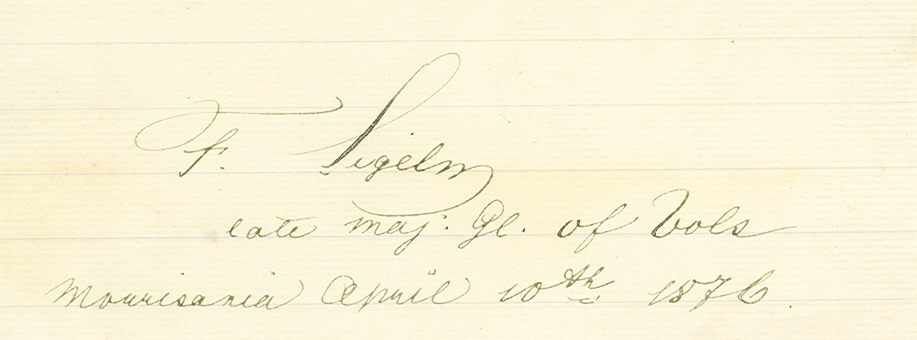 F. Sigel
late maj. Gl. of Vols
Mourisania April 10th 1876.